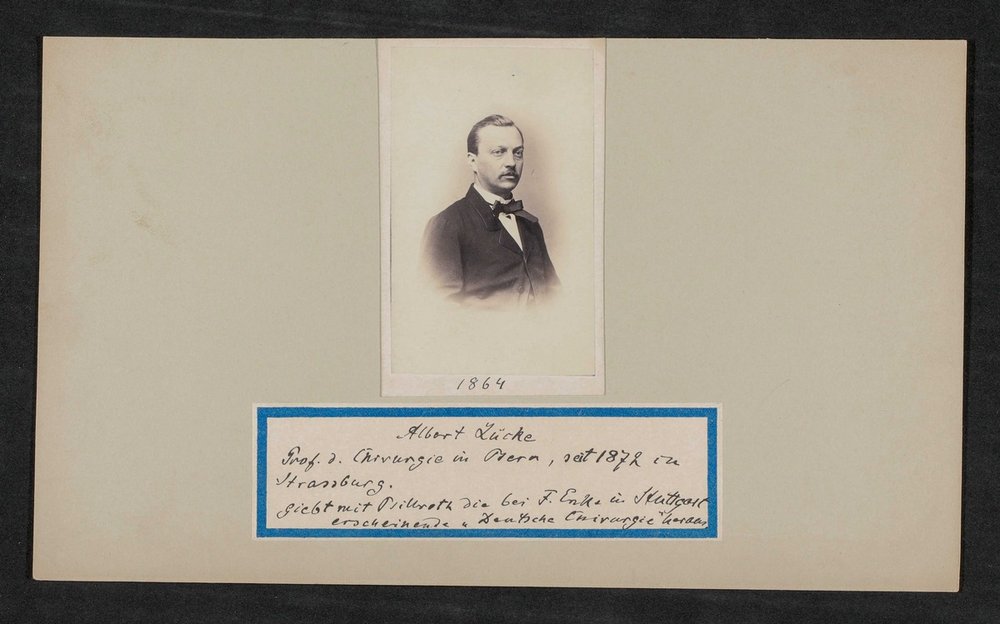 1864
Albert Lücke
Prof. d. Chirurgie in Bern, seit 1872 in
Strassburg.
giebt mit Billroth die bei F. Enke in Stuttgart
erscheinende "Deutsche Chirurgie" heraus